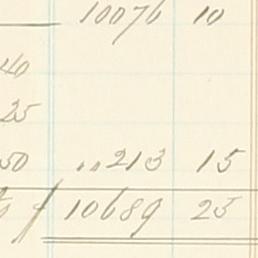 10076 10
40
25
50 " 213 15
10689 25